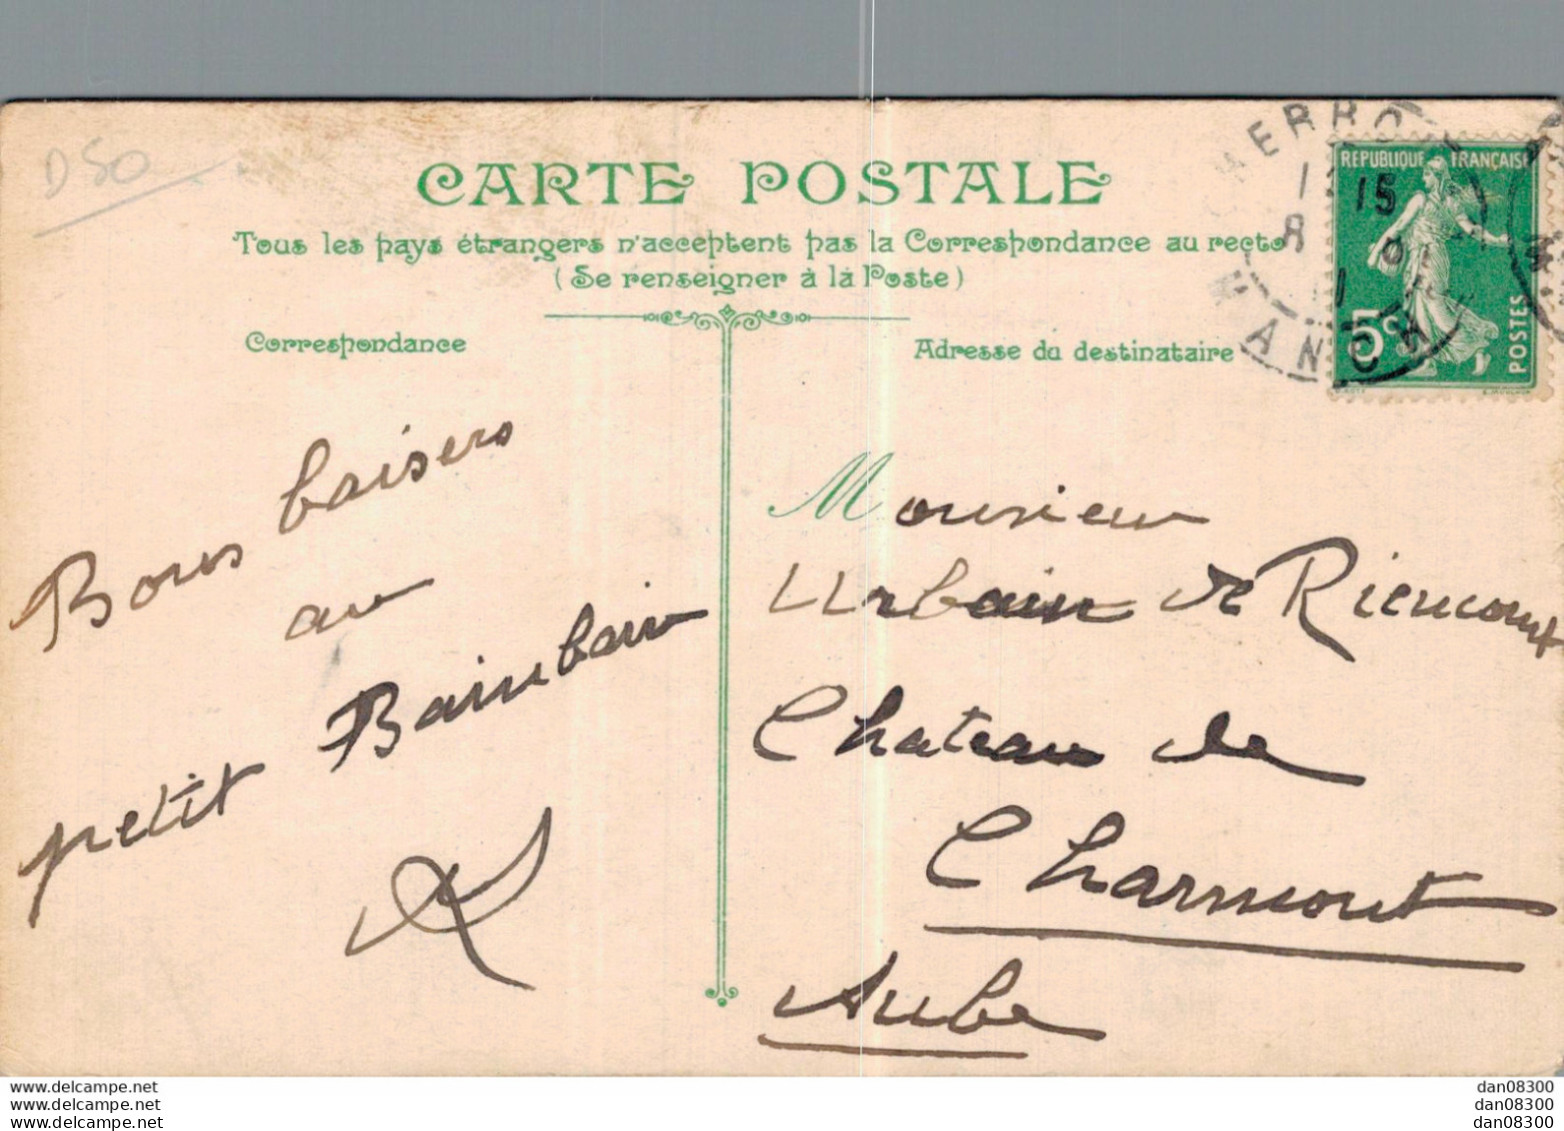 D 50
CARTE POSTALE
Tous les pays étrangers n'acceptent pas la Correspondance au recto
(Se renseigner à la Poste)
Correspondance
Bons baisers
au
petit Bainbain
Adresse du destinataire
Monsieur
Urbain de Riemcourt
Chateau de
Charmont
Aube
RÉPUBLIQUE FRANÇAISE
5c
POSTES
15
MANCH
www.delcampe.net
www.delcampe.net
www.delcampe.net
dan08300
dan08300
dan08300